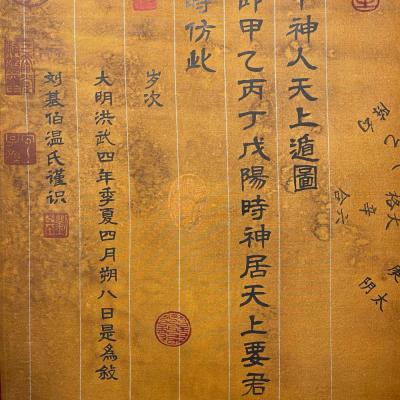 神人天上遁圖
即甲乙丙丁戊陽時神居天上要君
時仿此
岁次
大明洪武四年季夏四月朔八日是為敘
刘基伯温氏谨识
乙
格大
辛
合六
庚
太阴